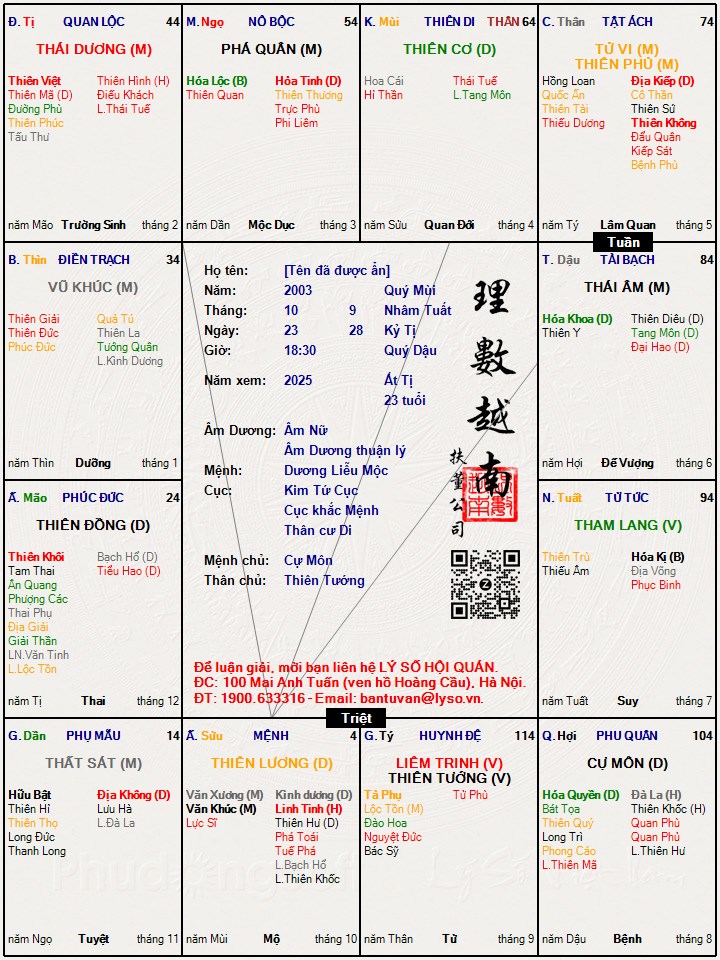 Đ. Tị QUAN LỘC 44
THÁI DƯƠNG (M)
Thiên Việt Thiên Hình (H)
Thiên Mã (D) Điếu Khách
Đường Phù L.Thái Tuế
Thiên Phúc
Tấu Thư
năm Mão Trường Sinh tháng 2
M. Ngọ NÔ BỘC 54
PHÁ QUÂN (M)
Hóa Lộc (B) Hỏa Tinh (D)
Thiên Quan Thiên Thương
Trực Phù
Phi Liêm
năm Dần Mộc Dục tháng 3
K. Mùi THIÊN DI THÂN 64
THIÊN CƠ (D)
Hoa Cái Thái Tuế
Hỉ Thần L.Tang Môn
năm Sửu Quan Đới tháng 4
C. Thân TẬT ÁCH 74
TỬ VI (M)
THIÊN PHỦ (M)
Hồng Loan Địa Kiếp (D)
Quốc Ấn Cô Thần
Thiên Tài Thiên Sứ
Thiếu Dương Thiên Không
Đẩu Quân
Kiếp Sát
Bệnh Phù
năm Tý Lâm Quan tháng 5
Tuần
B. Thìn ĐIỀN TRẠCH 34
VŨ KHÚC (M)
Thiên Giải Quả Tú
Thiên Đức Thiên La
Phúc Đức Tướng Quân
L.Kình Dương
năm Thìn Dưỡng tháng 1
Họ tên: [Tên đã được ẩn]
Năm: 2003 Quý Mùi
Tháng: 10 9 Nhâm Tuất
Ngày: 23 28 Kỷ Tị
Giờ: 18:30 Quý Dậu
Năm xem: 2025 Ất Tị
23 tuổi
Âm Dương: Âm Nữ
Âm Dương thuận lý
Mệnh: Dương Liễu Mộc
Cục: Kim Tứ Cục
Cục khắc Mệnh
Thân cư Di
Mệnh chủ: Cự Môn
Thân chủ: Thiên Tướng
理數越南
扶董公司
Để luận giải, mời bạn liên hệ LÝ SỐ HỘI QUÁN.
ĐC: 100 Mai Anh Tuấn (ven hồ Hoàng Cầu), Hà Nội.
ĐT: 1900.633316 - Email: bantuvan@lyso.vn.
T. Dậu TÀI BẠCH 84
THÁI ÂM (M)
Hóa Khoa (D) Thiên Diêu (D)
Thiên Y Tang Môn (D)
Đại Hao (D)
năm Hợi Đế Vượng tháng 6
Ấ. Mão PHÚC ĐỨC 24
THIÊN ĐỒNG (D)
Thiên Khôi Bạch Hổ (D)
Tam Thai Tiểu Hao (D)
Ân Quang
Phượng Các
Thai Phụ
Địa Giải
Giải Thần
LN.Văn Tinh
L.Lộc Tồn
năm Tị Thai tháng 12
N. Tuất TỬ TỨC 94
THAM LANG (V)
Thiên Trù Hóa Kị (B)
Thiếu Âm Địa Võng
Phục Binh
năm Tuất Suy tháng 7
Triệt
G. Dần PHỤ MẪU 14
THẤT SÁT (M)
Hữu Bật Địa Không (D)
Thiên Hỉ Lưu Hà
Thiên Thọ L.Đà La
Long Đức
Thanh Long
năm Ngọ Tuyệt tháng 11
Ấ. Sửu MỆNH 4
THIÊN LƯƠNG (D)
Văn Xương (M) Kình dương (D)
Văn Khúc (M) Linh Tinh (H)
Lực Sĩ Thiên Hư (D)
Phá Toái
Tuế Phá
L.Bạch Hổ
L.Thiên Khốc
năm Mùi Mộ tháng 10
G. Tý HUYNH ĐỆ 114
LIÊM TRINH (V)
THIÊN TƯỚNG (V)
Tả Phụ Tử Phù
Lộc Tồn (M)
Đào Hoa
Nguyệt Đức
Bác Sỹ
năm Thân Tử tháng 9
Q. Hợi PHU QUÂN 104
CỰ MÔN (D)
Hóa Quyền (D) Đà La (H)
Bát Tọa Thiên Khốc (H)
Thiên Quý Quan Phù
Long Trì Quan Phủ
Phong Cáo L.Thiên Hư
L.Thiên Mã
năm Dậu Bệnh tháng 8